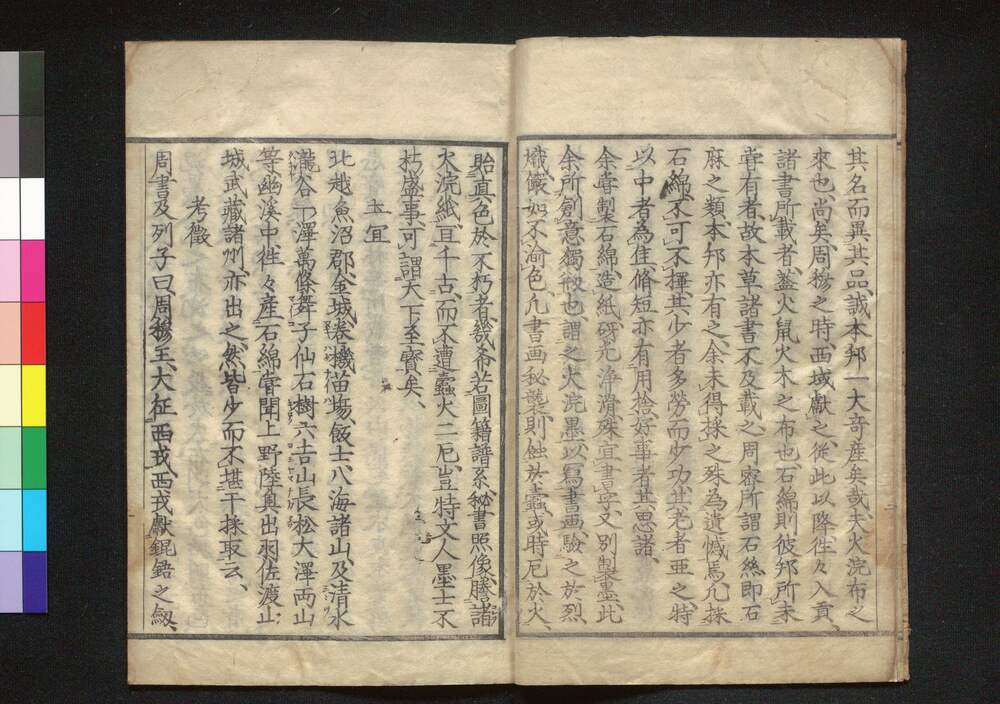 其名而異其品、誠本邦一大奇産矣哉、夫火浣布之
來也、尚矣、周穆之時、西域獻之、從此以降、往々入貢、
諸書所載者、蓋火鼠火木之布也、石綿則彼邦所未
嘗有者、故本草諸書不及載之、周密所謂石絲、即石
麻之類、本邦亦有之、余未得採之、殊為遺憾焉、凢採
石綿、不可不擇、其少者多勞而少功、其老者亜之、特
以中者為佳、脩短亦有用捨、好事者其思諸、
余嘗製石綿、造紙砑光浄滑、殊宜書字、又別製墨、此
余所創意獨衒也、謂之火浣墨、以寫書画、驗之於烈
熾、儼如不渝色、凢書画秘襲、則蝕於蠧、或時厄於火、
貽眞色於不朽者、幾希、若圖籍譜系秘書照像、謄諸
火浣紙、亘千古、而不遭蠧火二厄、豈特文人墨士不
朽盛事、可謂天下至寳矣、
土宜
北越魚沼郡、金城、巻機、苗塲、飯士、八海諸山、及清水
瀧谷、一ノ澤、萬條、舞子、仙石、樹六、古山、長松、大澤、両山
等幽溪中、徃々産石綿、嘗聞上野、陸奥、出羽、佐渡、山
城、武藏諸州、亦出之、然皆少而不堪干採取云、
考徴
周書及列子曰、周穆王大征西戎、西戎獻錕鋙之劔、